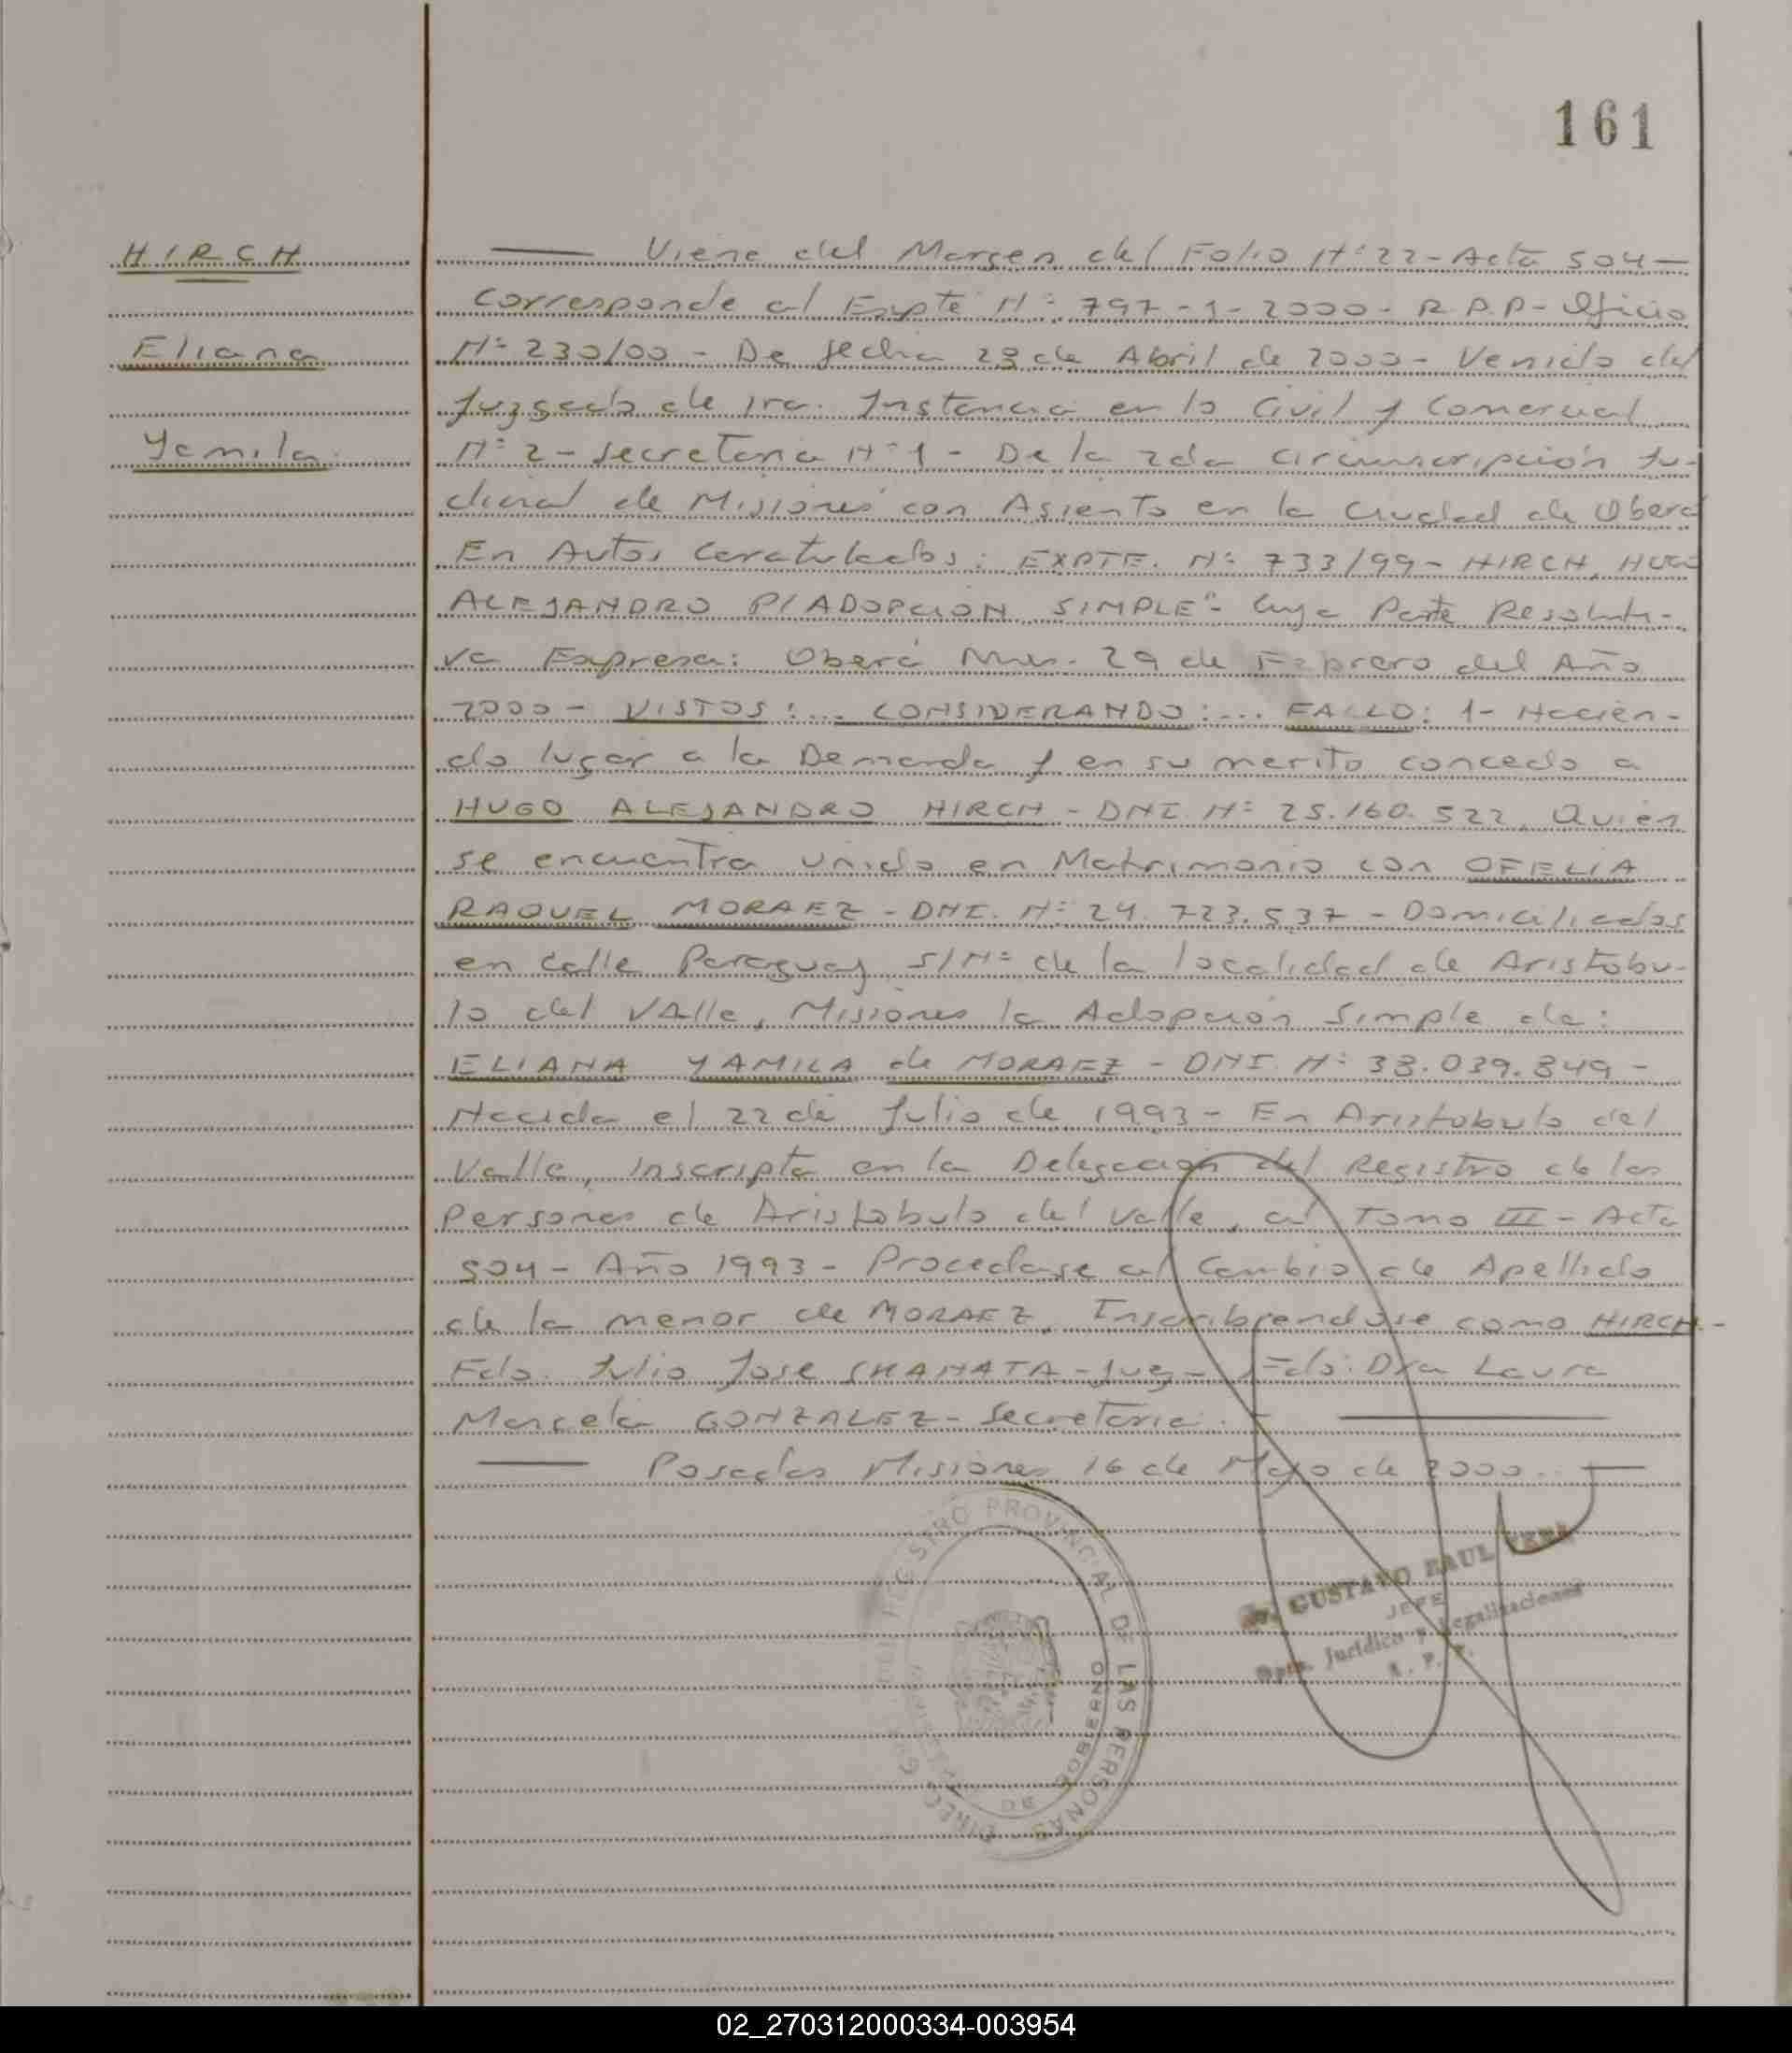 161
HIRCH
Eliana
Yamila
Viene del Margen del Folio Nº 22 - Acta 504 -
Corresponde al Expte Nº: 797-1-2000 - R.P.P - Oficio
Nº 230/00 - De fecha 28 de Abril de 2000 - Venido del
Juzgado de 1ra. Instancia en lo Civil y Comercial
Nº 2 - Secretaria Nº 1 - De la 2da Circunscripción Ju-
dicial de Misiones con Asiento en la Ciudad de Oberá
En Autos Caratulados: EXPTE. Nº 733/99 - HIRCH, HUGO
ALEJANDRO P/ ADOPCION SIMPLE" - Cuya Parte Resoluti-
va Expresa: Oberá Mnes. 29 de Febrero del Año
2000 - VISTOS: ... CONSIDERANDO: ... FALLO: 1- Hacien-
do lugar a la Demanda y en su merito concedo a
HUGO ALEJANDRO HIRCH - DNI. Nº 25.160.522, Quien
se encuentra unido en Matrimonio con OFELIA
RAQUEL MORAEZ - DNI. Nº 24.723.537 - Domiciliados
en calle Paraguay S/Nº de la localidad de Aristobu-
lo del Valle, Misiones la Adopción Simple de:
ELIANA YAMILA de MORAEZ - DNI. Nº 38.039.849 -
Nacida el 22 de Julio de 1993 - En Aristobulo del
Valle, inscripta en la Delegación del Registro de las
Personas de Aristobulo del Valle, al Tomo III - Acta
504 - Año 1993 - Procedase al Cambio de Apellido
de la menor de MORAEZ, Inscribiendose como HIRCH. -
Fdo. Julio Jose - Juez - Fdo: Dra Laura
Marcela GONZALEZ - Secretaria. -
Posadas Misiones 16 de Mayo de 2000. -
REGISTRO PROVINCIAL DE LAS PERSONAS
GOBIERNO
GUSTAVO RAUL
JEFE
Dpto. Jurídico y Legalizaciones
R. P. P.
02_270312000334-003954